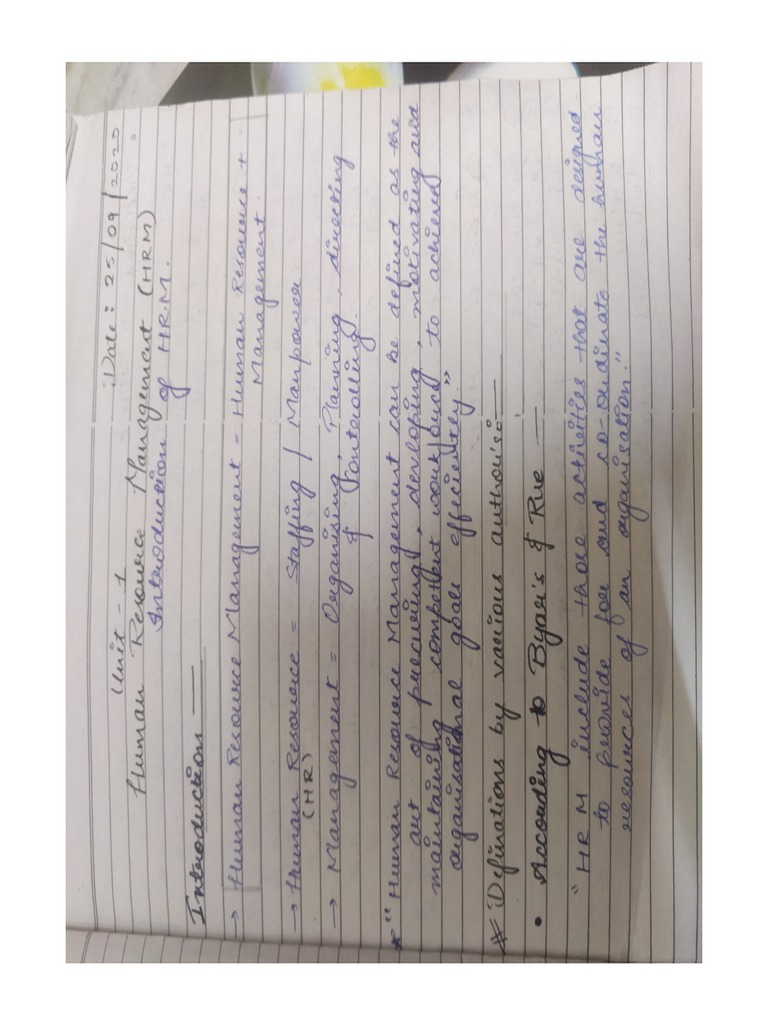 Date : 25/09/2020
Unit - 1
Human Resource Management (HRM)
Introduction of H.R.M.
Introduction —
→ Human Resource Management = Human Resource +
Management
→ Human Resource = Staffing / Manpower
(HR)
→ Management = Organising, Planning, directing
& Controlling.
* "Human Resource Management can be defined as the
art of procuring, developing, motivating and
maintaining competent workforce to achieve
organisational goals efficientey"
* Definations by various author's:—
• According to Byar's & Rue —
"HRM include those activities that are designed
to provide for and co-ordinate the human
resources of an organisation."